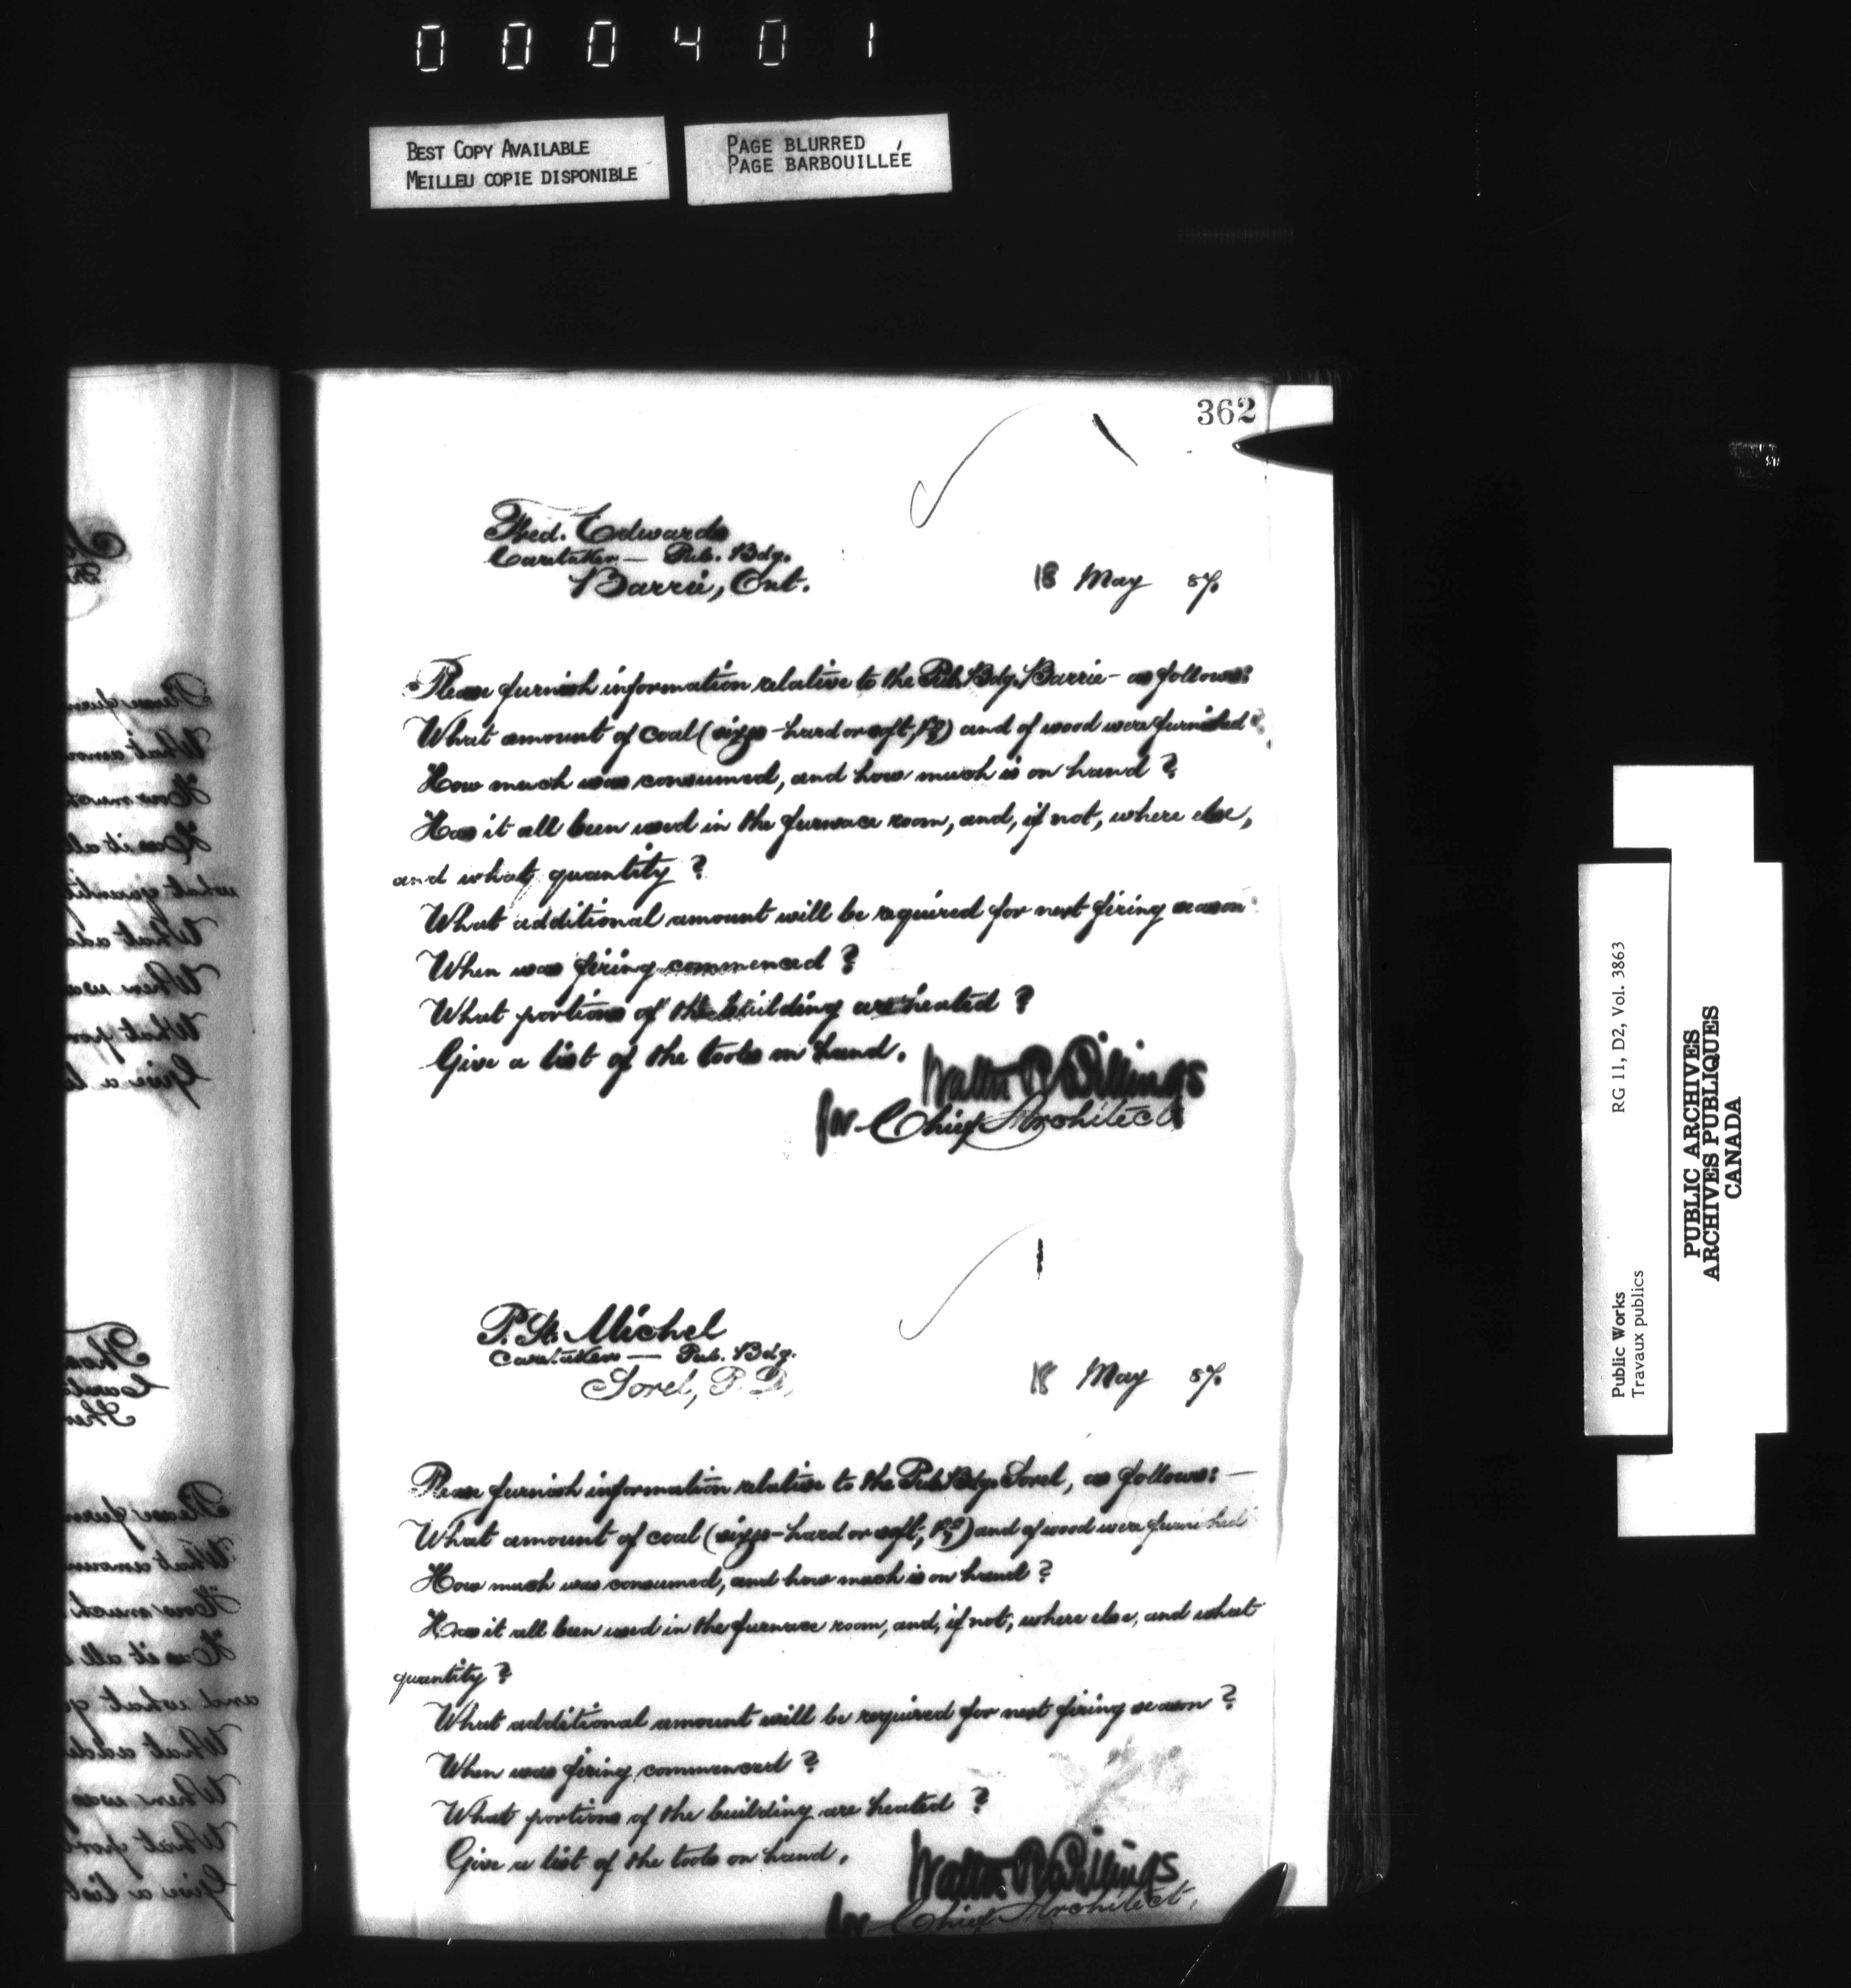 000401
BEST COPY AVAILABLE
MEILLEU COPIE DISPONIBLE
PAGE BLURRED
PAGE BARBOUILLÉE
362
Fred. Edwards
Caretaker — Pub. Bdg.
Barrie, Ont.
18 May 87.
Please furnish information relative to the Pub. Bdg. Barrie - as follows:
What amount of coal (sizes - hard or soft, ) and of wood were furnished
How much was consumed, and how much is on hand ?
Has it all been used in the furnace room, and, if not, where else,
and what quantity ?
What additional amount will be required for next firing season
When was firing commenced ?
What portions of the building are heated ?
Give a list of the tools on hand.
Walter R Billings
for Chief Architect
P. St. Michel
Caretaker — Pub. Bdg.
Sorel, P. Q.
18 May 87.
Please furnish information relative to the Pub. Bdg. Sorel, as follows: —
What amount of coal (sizes - hard or soft, ) and of wood were furnished
How much was consumed, and how much is on hand ?
Has it all been used in the furnace room, and, if not, where else, and what
quantity ?
What additional amount will be required for next firing season ?
When was firing commenced ?
What portions of the building are heated ?
Give a list of the tools on hand.
Walter R Billings
for Chief Architect.
Public Works
Travaux publics
RG 11, D2, Vol. 3863
PUBLIC ARCHIVES
ARCHIVES PUBLIQUES
CANADA